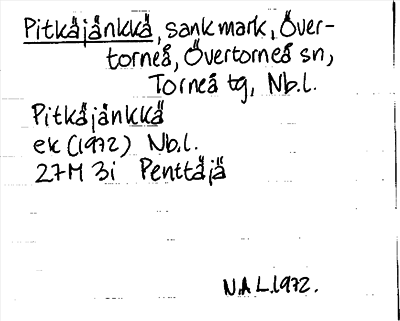 Pitkäjänkkä, sank mark, Över-
torneå, Övertorneå sn,
Torneå tg, Nb.l.
Pitkäjänkkä
ek (1972) Nb.l.
27M 3i Penttäjä
N.A L.1972.